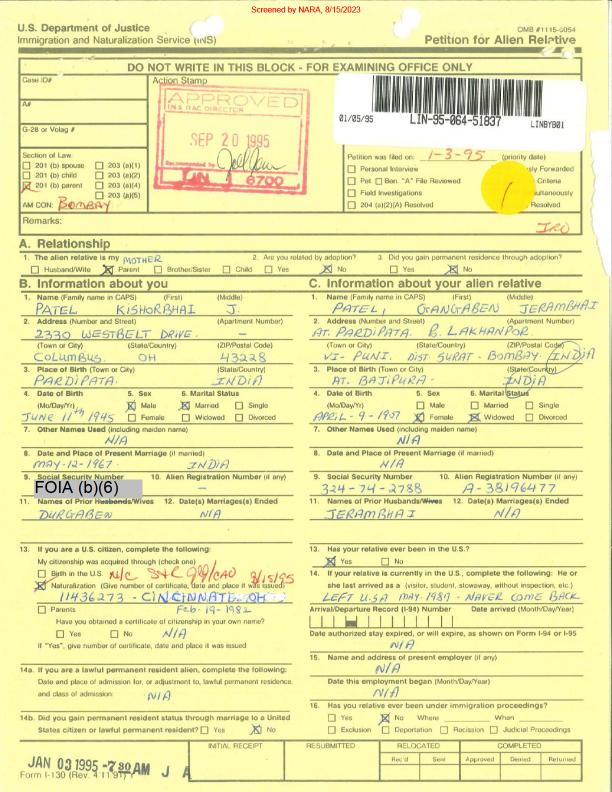 Screened by NARA, 8/15/2023
U.S. Department of Justice
Immigration and Naturalization Service (INS)
OMB #1115-0054
Petition for Alien Relative
DO NOT WRITE IN THIS BLOCK - FOR EXAMINING OFFICE ONLY
Case ID#
Action Stamp
A#
G-28 or Volag #
APPROVED
INS RAC DIRECTOR
SEP 20 1995
Recommended by
6700
01/05/95
LIN-95-064-51837
LINBYB01
Section of Law:
201 (b) spouse 203 (a)(1)
201 (b) child 203 (a)(2)
201 (b) parent 203 (a)(4)
203 (a)(5)
AM CON: BOMBAY
Petition was filed on: 1-3-95 (priority date)
Personal Interview
Pet. Ben. "A" File Reviewed
Field Investigations
204 (a)(2)(A) Resolved
Forwarded
Criteria
Resolved
1
Remarks:
A. Relationship
1. The alien relative is my MOTHER
Husband/Wife Parent Brother/Sister Child
2. Are you related by adoption?
Yes No
3. Did you gain permanent residence through adoption?
Yes No
B. Information about you
1. Name (Family name in CAPS) (First) (Middle)
PATEL KISHORBHAI J.
2. Address (Number and Street) (Apartment Number)
2330 WESTBELT DRIVE. -
(Town or City) (State/Country) (ZIP/Postal Code)
COLUMBUS. OH 43228
3. Place of Birth (Town or City) (State/Country)
PARDIPATA. INDIA
4. Date of Birth 5. Sex 6. Marital Status
(Mo/Day/Yr) Male Married Single
JUNE 11th 1945 Female Widowed Divorced
7. Other Names Used (including maiden name)
N/A
8. Date and Place of Present Marriage (if married)
MAY-12-1967. INDIA
9. Social Security Number 10. Alien Registration Number (if any)
FOIA (b)(6) -
11. Names of Prior Husbands/Wives 12. Date(s) Marriages(s) Ended
DURGABEN N/A
13. If you are a U.S. citizen, complete the following:
My citizenship was acquired through (check one)
Birth in the U.S. N/C 8/15/95
Naturalization (Give number of certificate, date and place it was issued)
11436273 - CINCINNATI. OH
Parents Feb-19-1982
Have you obtained a certificate of citizenship in your own name?
Yes No N/A
If "Yes", give number of certificate, date and place it was issued
14a. If you are a lawful permanent resident alien, complete the following:
Date and place of admission for, or adjustment to, lawful permanent residence,
and class of admission: N/A
14b. Did you gain permanent resident status through marriage to a United
States citizen or lawful permanent resident? Yes No
C. Information about your alien relative
1. Name (Family name in CAPS) (First) (Middle)
PATEL, GANGABEN JERAMBHAI
2. Address (Number and Street) (Apartment Number)
AT. PARDIPATA. P. LAKHANPOR.
(Town or City) (State/Country) (ZIP/Postal Code)
VI- PUNI. DIST. SURAT - BOMBAY. INDIA
3. Place of Birth (Town or City) (State/Country)
AT. BAJIPURA- INDIA
4. Date of Birth 5. Sex 6. Marital Status
(Mo/Day/Yr) Male Married Single
APRIL-9-1907 Female Widowed Divorced
7. Other Names Used (including maiden name)
N/A
8. Date and Place of Present Marriage (if married)
N/A
9. Social Security Number 10. Alien Registration Number (if any)
324-74-2788 A-38196477
11. Names of Prior Husbands/Wives 12. Date(s) Marriages(s) Ended
JERAMBHAI N/A
13. Has your relative ever been in the U.S.?
Yes No
14. If your relative is currently in the U.S., complete the following: He or
she last arrived as a (visitor, student, stowaway, without inspection, etc.)
LEFT U.S.A MAY-1989 - NAVER COME BACK
Arrival/Departure Record (I-94) Number Date arrived (Month/Day/Year)
Date authorized stay expired, or will expire, as shown on Form I-94 or I-95
N/A
15. Name and address of present employer (if any)
N/A
Date this employment began (Month/Day/Year)
N/A
16. Has your relative ever been under immigration proceedings?
Yes No Where When
Exclusion Deportation Recission Judicial Proceedings
INITIAL RECEIPT RESUBMITTED RELOCATED COMPLETED
Rec'd Sent Approved Denied Returned
JAN 03 1995 -7 30 AM J A
Form I-130 (Rev. 4/11/91) Y